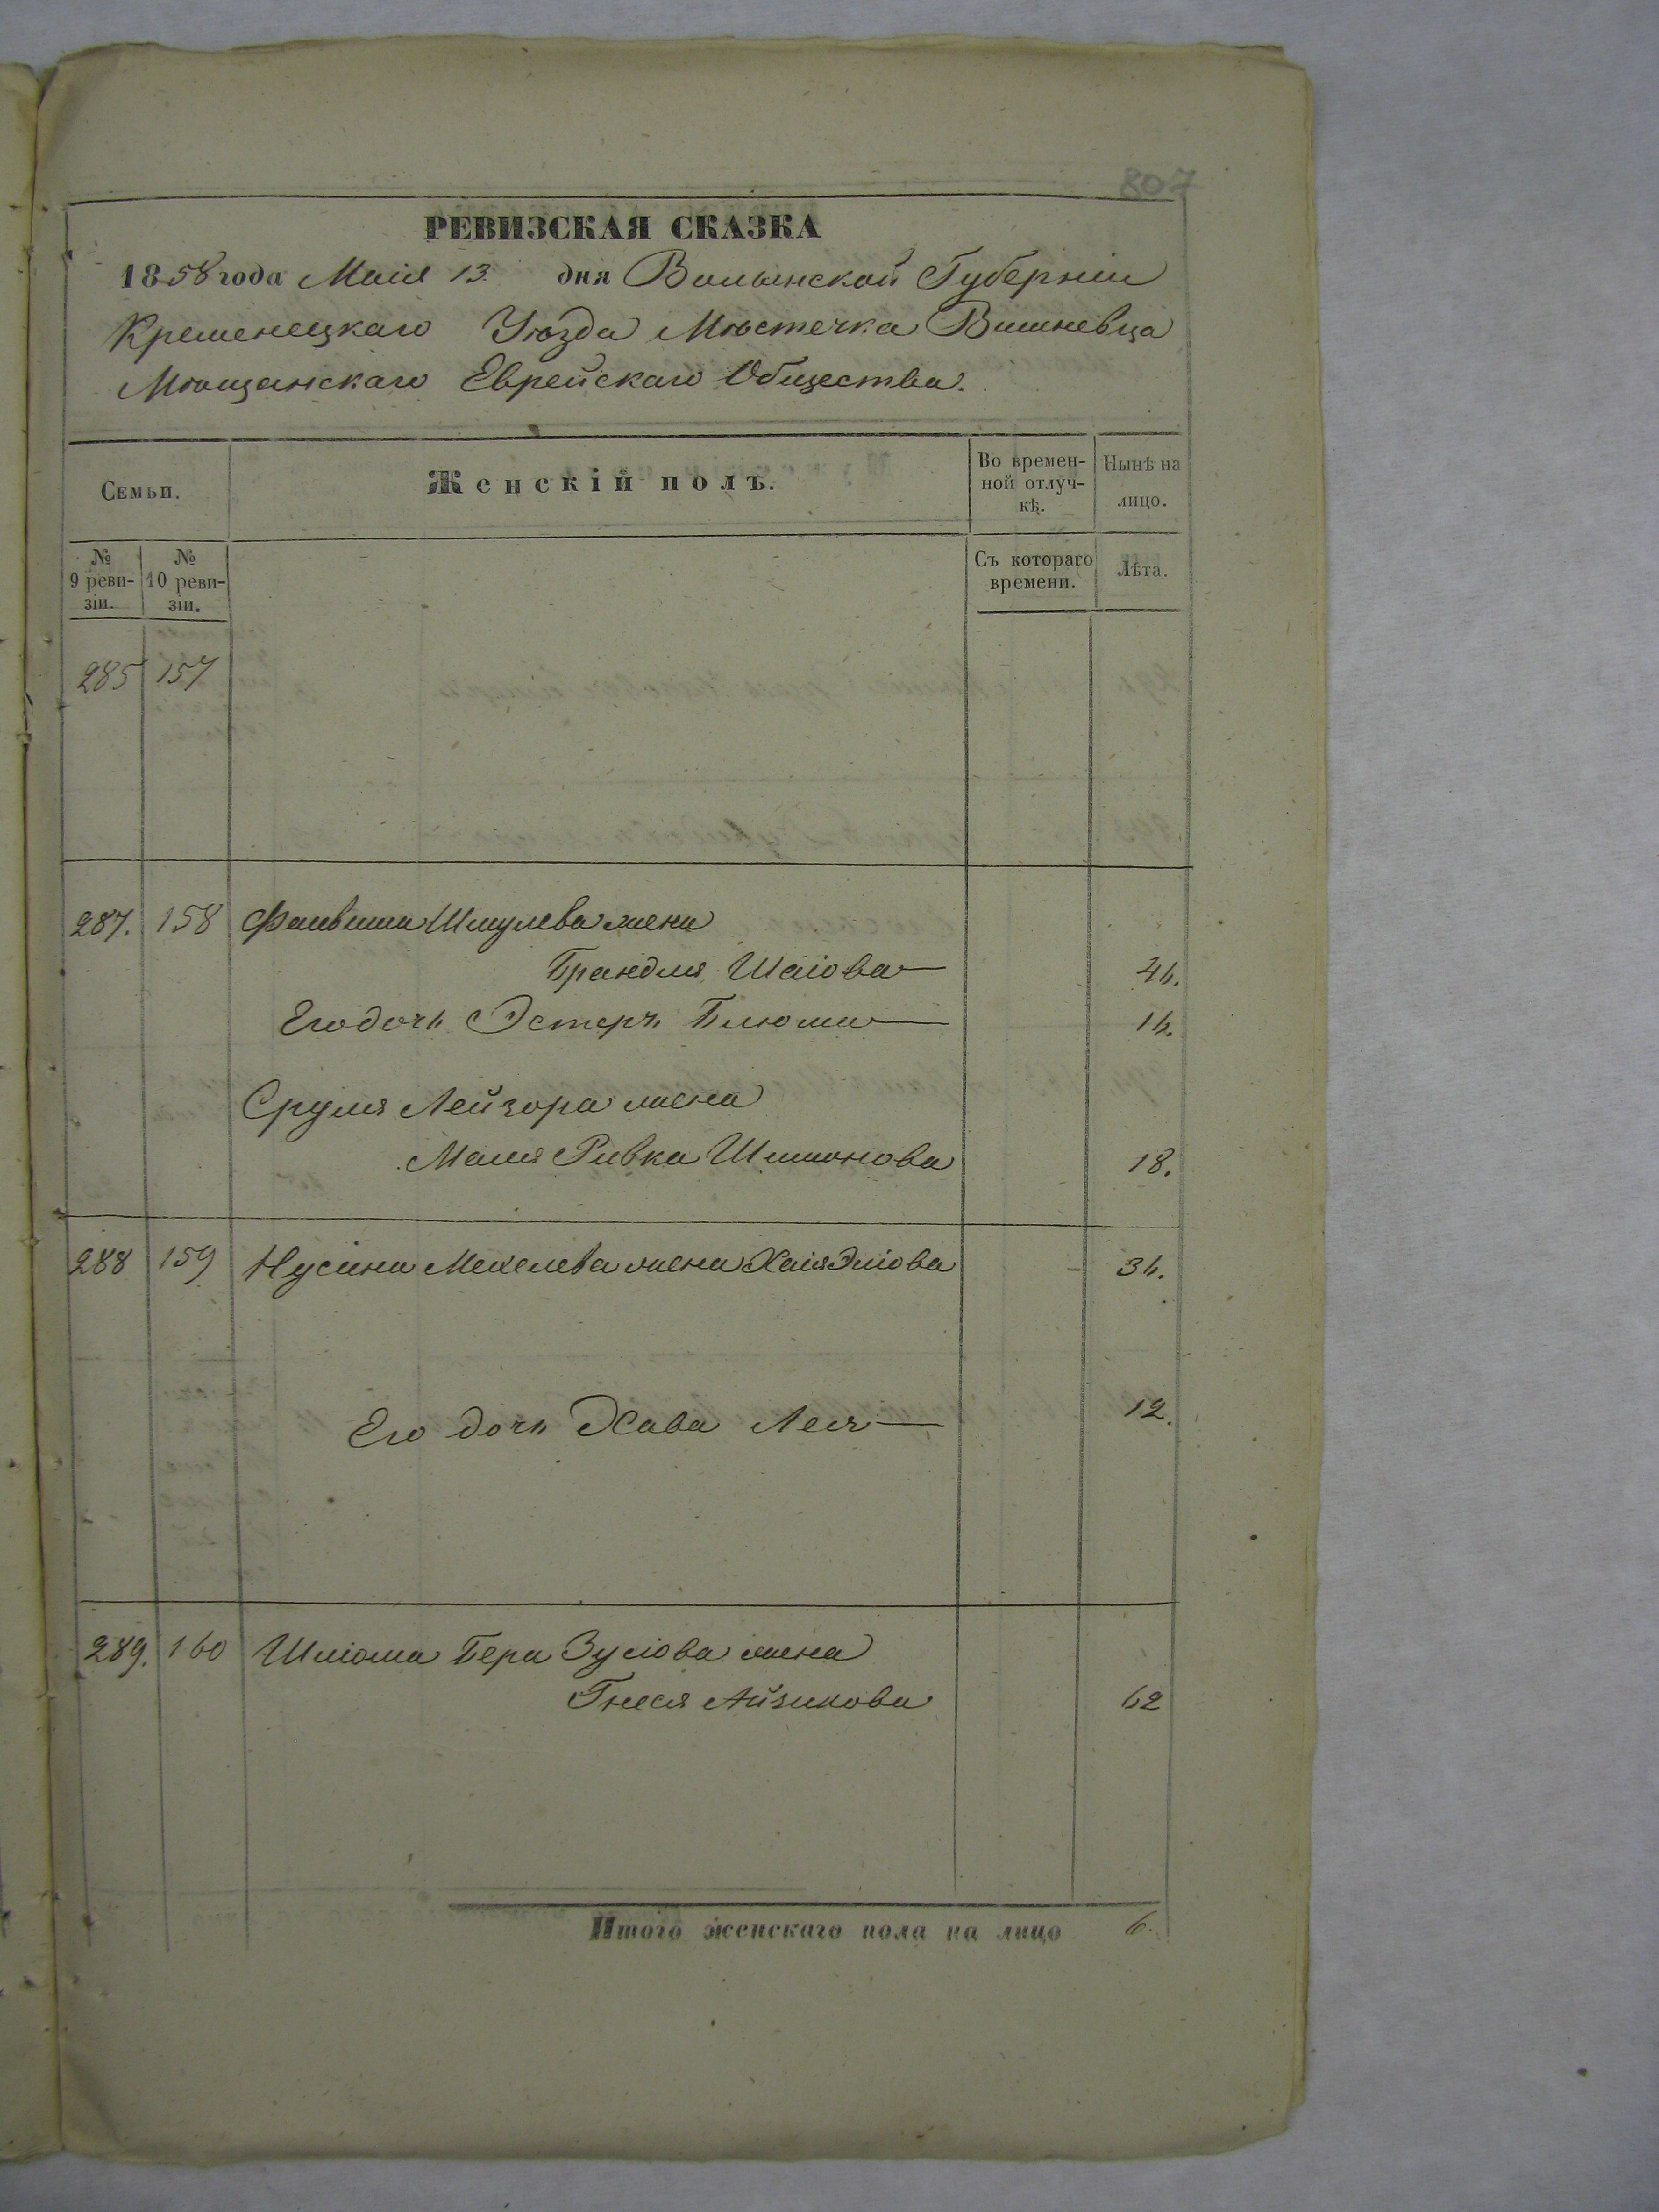 807
РЕВИЗСКАЯ СКАЗКА
1858 года Маія 13 дня Волынской Губерніи
Кременецкаго Уѣзда Мѣстечка Вишневца
Мѣщанскаго Еврейскаго Общества.
Семьи. Женскій полъ. Во времен-ной отлуч-кѣ. Нынѣ на лицо.
№ 9 реви-зіи. № 10 реви-зіи. Съ котораго времени. Лѣта.
285 157
287. 158 Файвиша Шмулева жена
Брандля Шаіова 46.
Его дочь Эстеръ Блюма 16.
Сруля Лейзора жена
Маля Ривка Шимонова 18.
288 159 Нусина Мехелева жена Хаія Эліова 36.
Его дочь Хава Лея 12.
289. 160 Шліома Бера Зусіова жена
Гнеся Айзикова 62
Итого женскаго пола на лицо 6.